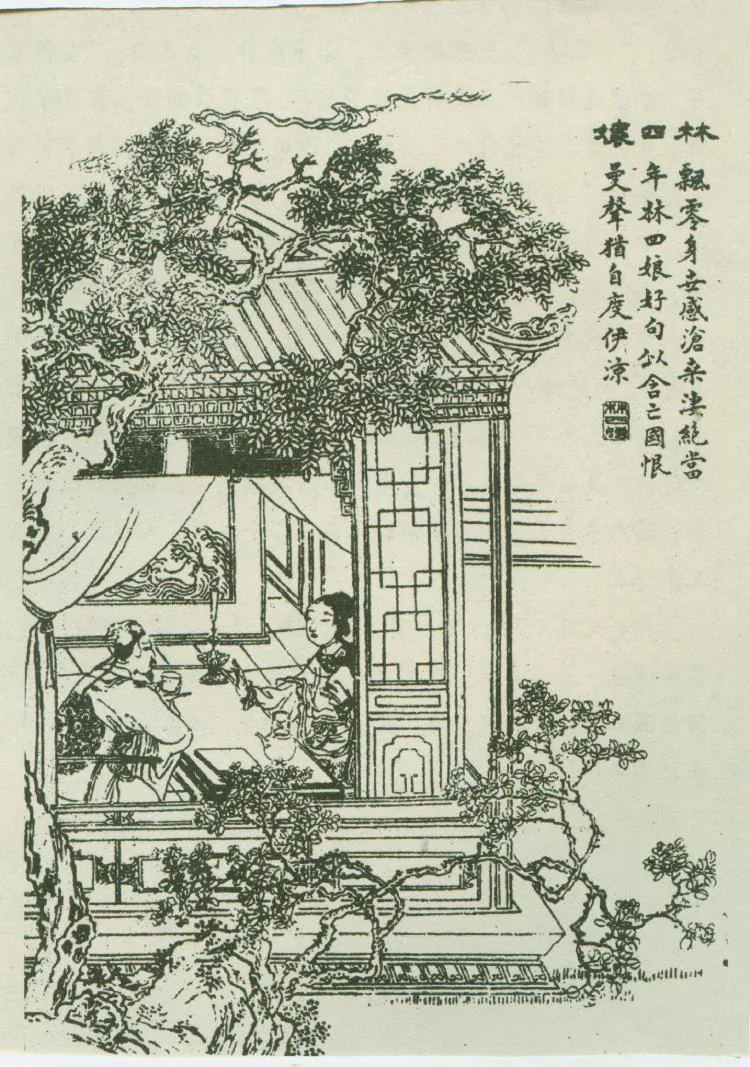 林四孃
飄零身世感滄桒淒絕當
年林四娘好句似含亡國恨
曼聲猶自度伊涼